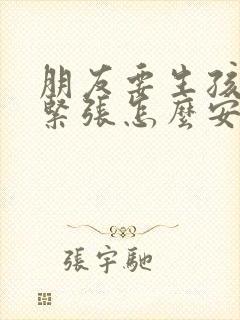 朋友要生孩
緊張怎麼安
張宇馳